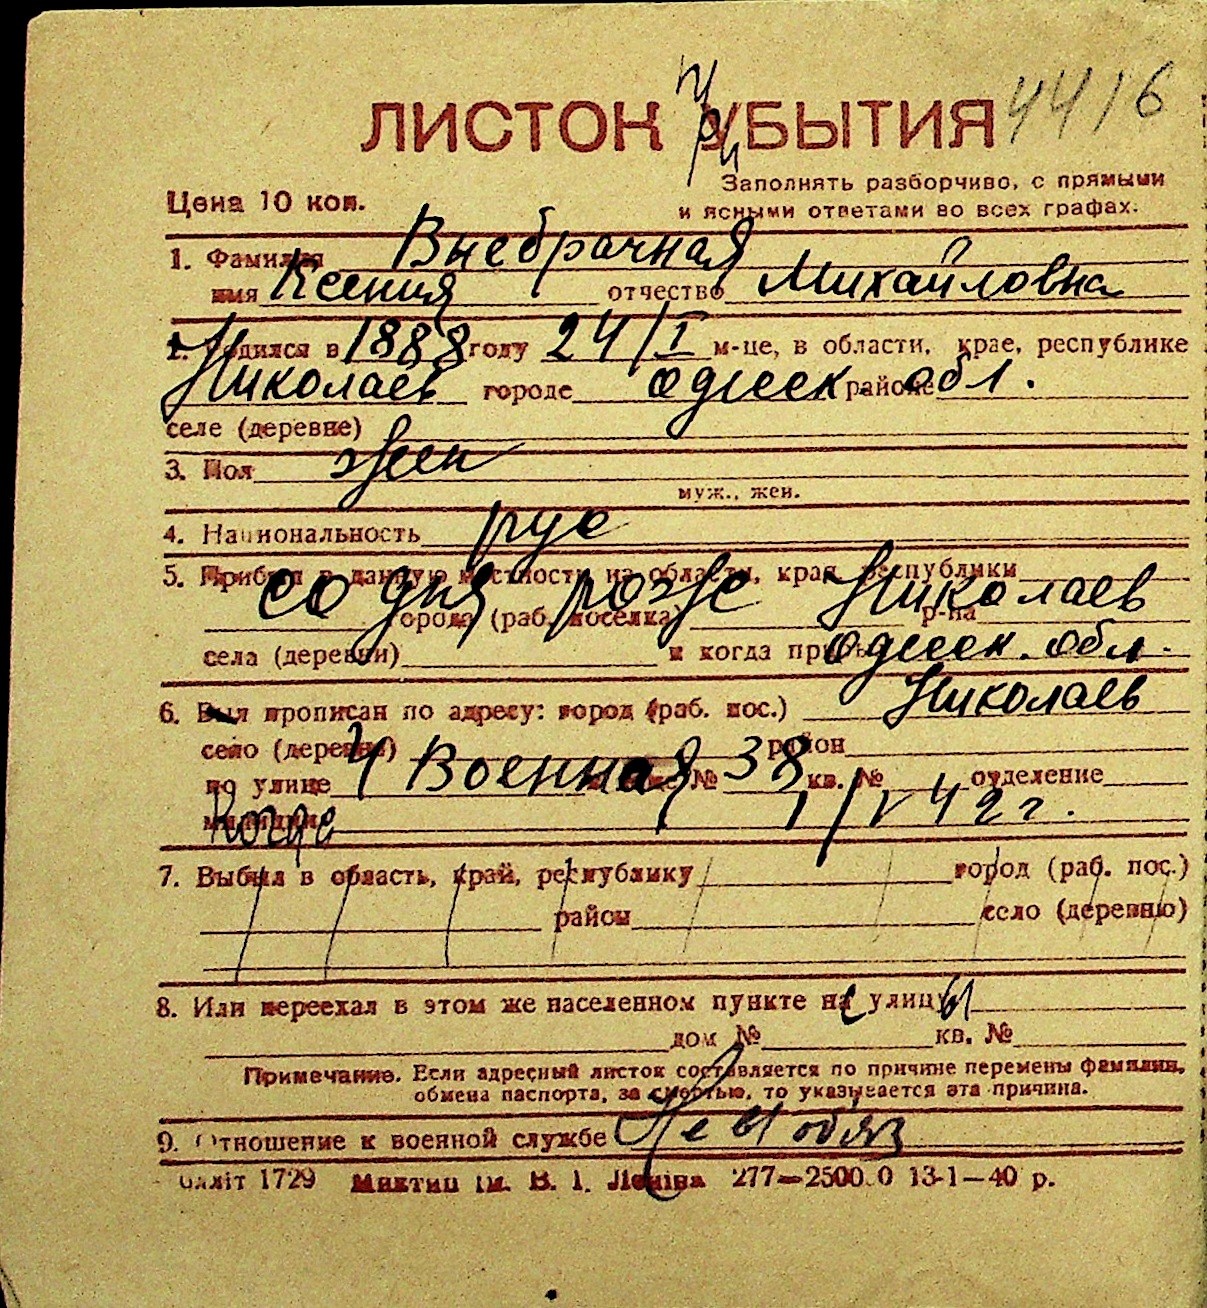 ЛИСТОК при УБЫТИЯ 4416
Цена 10 коп.
Заполнять разборчиво, с прямыми
и ясными ответами во всех графах.
1. Фамилия Внебрачная
имя Ксения отчество Михайловна
2. Родился в 1888 году 24/I м-це, в области, крае, республике
Николаев городе одесск. районе обл.
селе (деревне)
3. Пол жен
муж., жен.
4. Национальность рус
5. Прибыл в данную местность из области, края, республики
со дня рожд Николаев
города (раб. поселка) р-на
села (деревни) и когда прибыл одесск. обл.
6. Был прописан по адресу: город (раб. пос.) Николаев
село (деревня) район
по улице 4 Военная № 38 кв. № отделение
милиции когда 1/V 42 г.
7. Выбыл в область, край, республику город (раб. пос.)
район село (деревню)
8. Или переехал в этом же населенном пункте на с улицу ы
дом № кв. №
Примечание. Если адресный листок составляется по причине перемены фамилии,
обмена паспорта, за смертью, то указывается эта причина.
9. Отношение к военной службе
1729 ім. В. І. Леніна 277—2500.0 13-1—40 р.